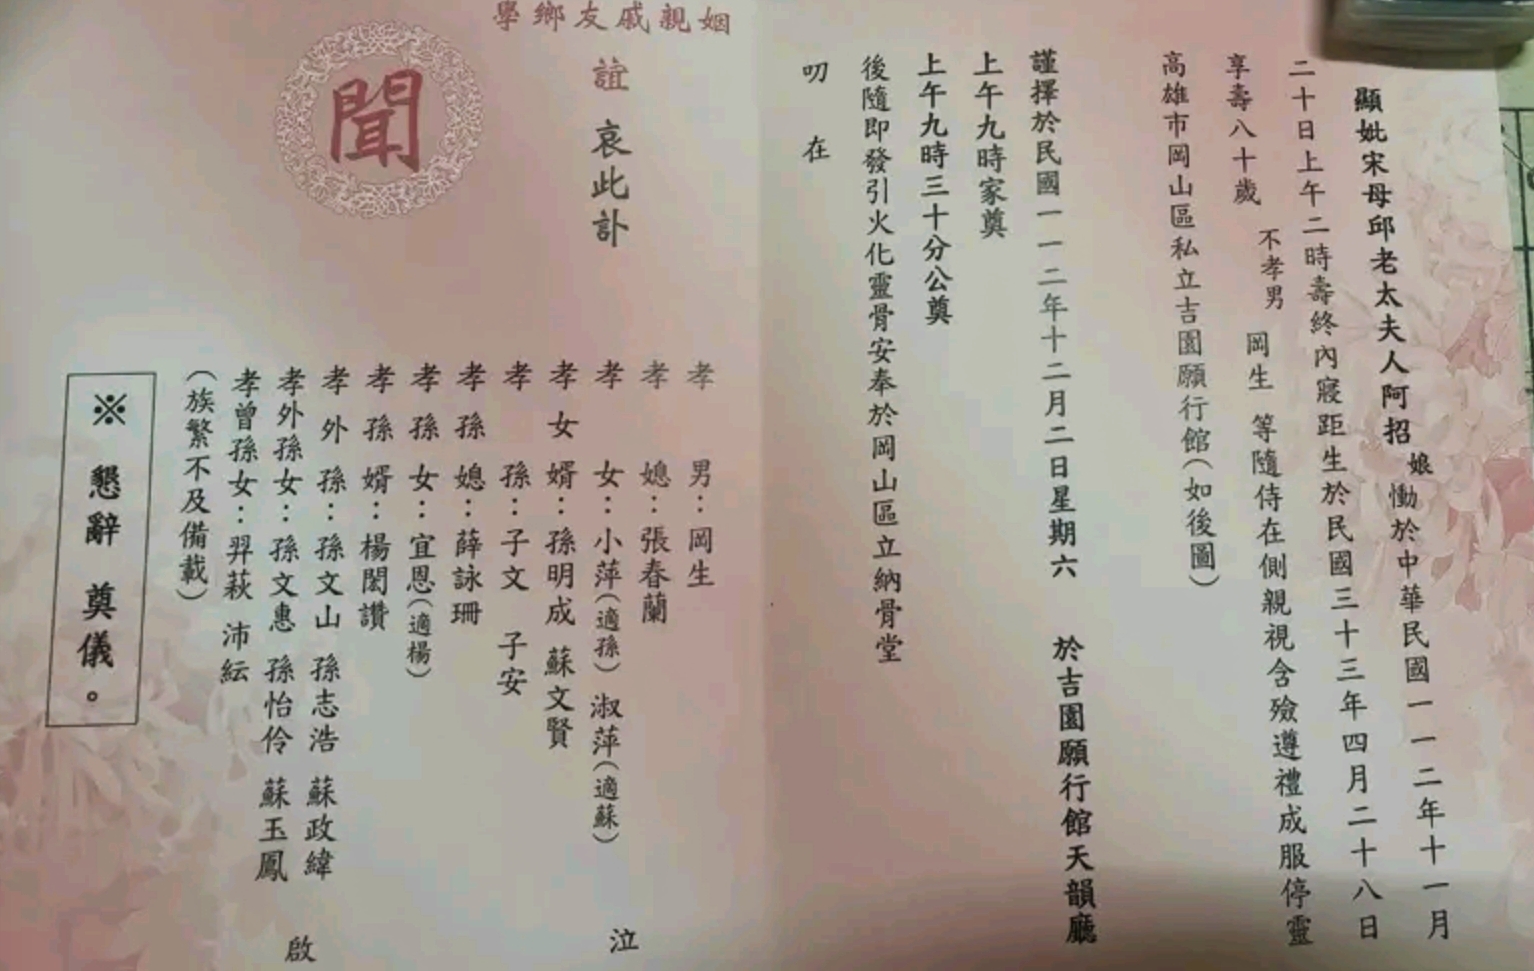 顯妣宋母邱老太夫人阿招娘慟於中華民國一一二年十一月
二十日上午二時壽終內寢距生於民國三十三年四月二十八日
享壽八十歲 不孝男 岡生 等隨侍在側親視含殮遵禮成服停靈
高雄市岡山區私立吉園願行館(如後圖)
謹擇於民國一一二年十二月二日星期六 於吉園願行館天韻廳
上午九時家奠
上午九時三十分公奠
後隨即發引火化靈骨安奉於岡山區立納骨堂
叨 在
姻親戚友鄉學
誼 哀此訃
聞
孝 男:岡生
孝 媳:張春蘭
孝 女:小萍(適孫) 淑萍(適蘇) 泣
孝女婿:孫明成 蘇文賢
孝 孫:子文 子安
孝孫媳:薛詠珊
孝孫女:宜恩(適楊)
孝孫婿:楊閎讚
孝外孫:孫文山 孫志浩 蘇政緯 啟
孝外孫女:孫文惠 孫怡伶 蘇玉鳳
孝曾孫女:羿萩 沛紜
(族繁不及備載)
※ 懇辭 奠儀。